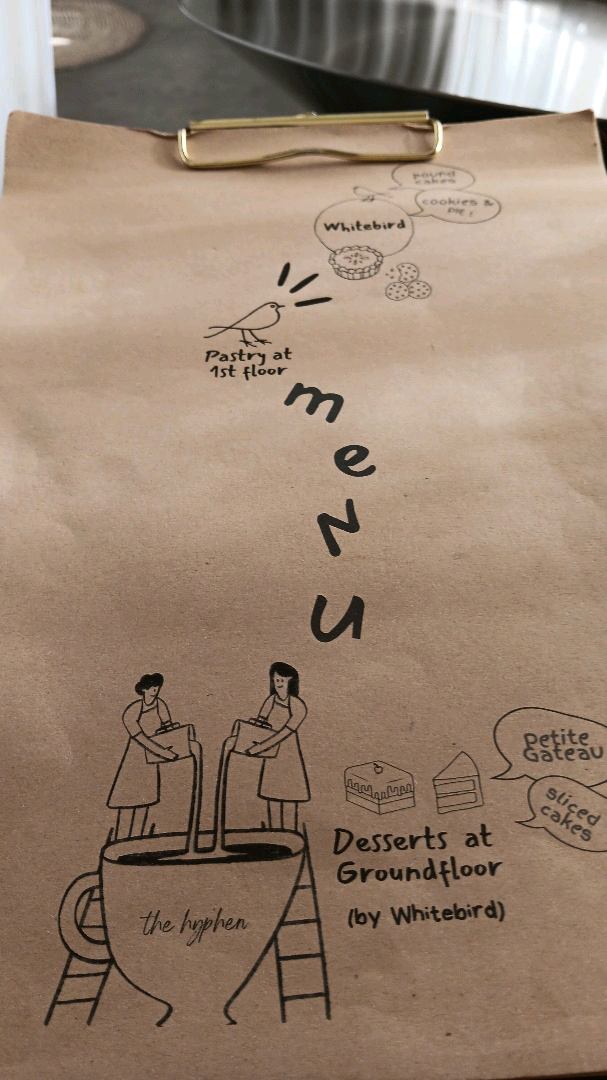 Pound
cakes
cookies &
pie!
Whitebird
Pastry at
1st floor
menu
Petite
Gateau
sliced
cakes
Desserts at
Groundfloor
(by Whitebird)
the hyphen